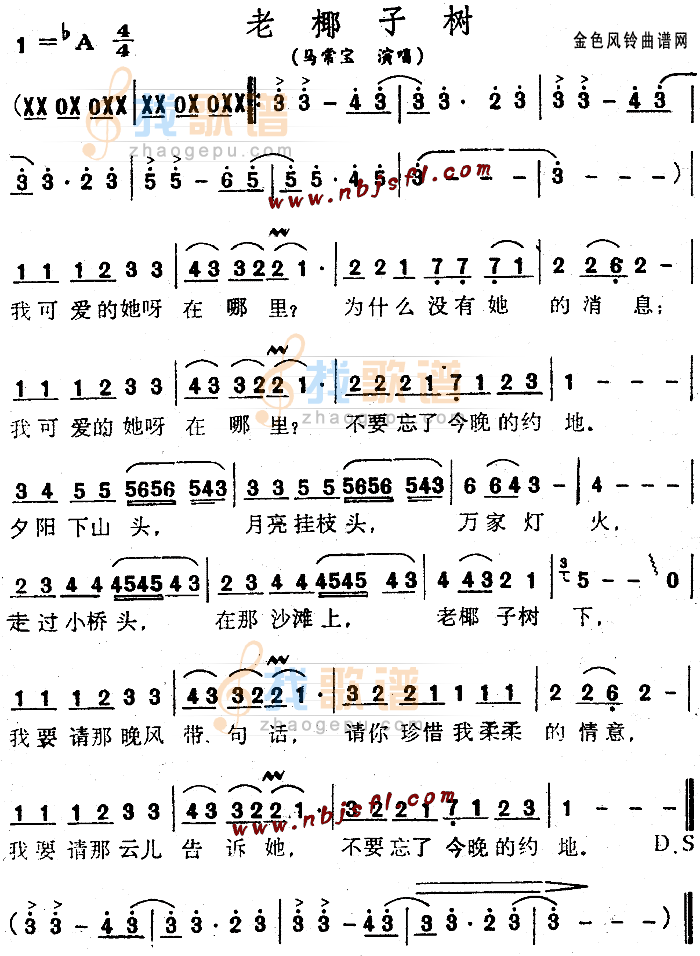 老椰子树
1=♭A 4/4
(马常宝 演唱)
金色风铃曲谱网
(XX 0X 0XX | XX 0X 0XX ‖: 3 3 - 43 | 3 3 · 23 | 3 3 - 43 |
找歌谱
zhaogepu.com
3 3 · 23 | 5 5 - 65 | 5 5 · 45 | 3 - - - | 3 - - - )
www.nbjsfl.com
1 1 1 2 3 3 | 43 322 2 1 · | 2 2 1 7 7 7 1 | 2 2 6 2 - |
我可爱的她呀在哪里？为什么没有她的消息；
找歌谱
1 1 1 2 3 3 | 43 322 2 1 · | 2 2 2 1 7 1 2 3 | 1 - - - |
zhaogepu.com
我可爱的她呀在哪里？不要忘了今晚的约地．
3 4 5 5 5656 543 | 3 3 5 5 5656 543 | 6 6 4 3 - | 4 - - - |
夕阳下山头，月亮挂枝头，万家灯火，
2 3 4 4 4545 4 3 | 2 3 4 4 4545 4 3 | 4 4 3 2 1 | 5 - - 0 |
走过小桥头，在那沙滩上，老椰子树下，
找歌谱
1 1 1 2 3 3 | 4 3 322 2 1 · | 3 2 2 1 1 1 1 | 2 2 6 2 - |
zhaogepu.com
我要请那晚风带、句话，请你珍惜我柔柔的情意，
1 1 1 2 3 3 | 43 322 2 1 · | 3 2 2 1 7 1 2 3 | 1 - - - |
www.nbjsfl.com
我要请那云儿告诉她，不要忘了今晚的约地．D.S
( 3 3 - 43 | 3 3 · 23 | 3 3 - 43 | 3 3 · 23 | 3 - - - ) ‖